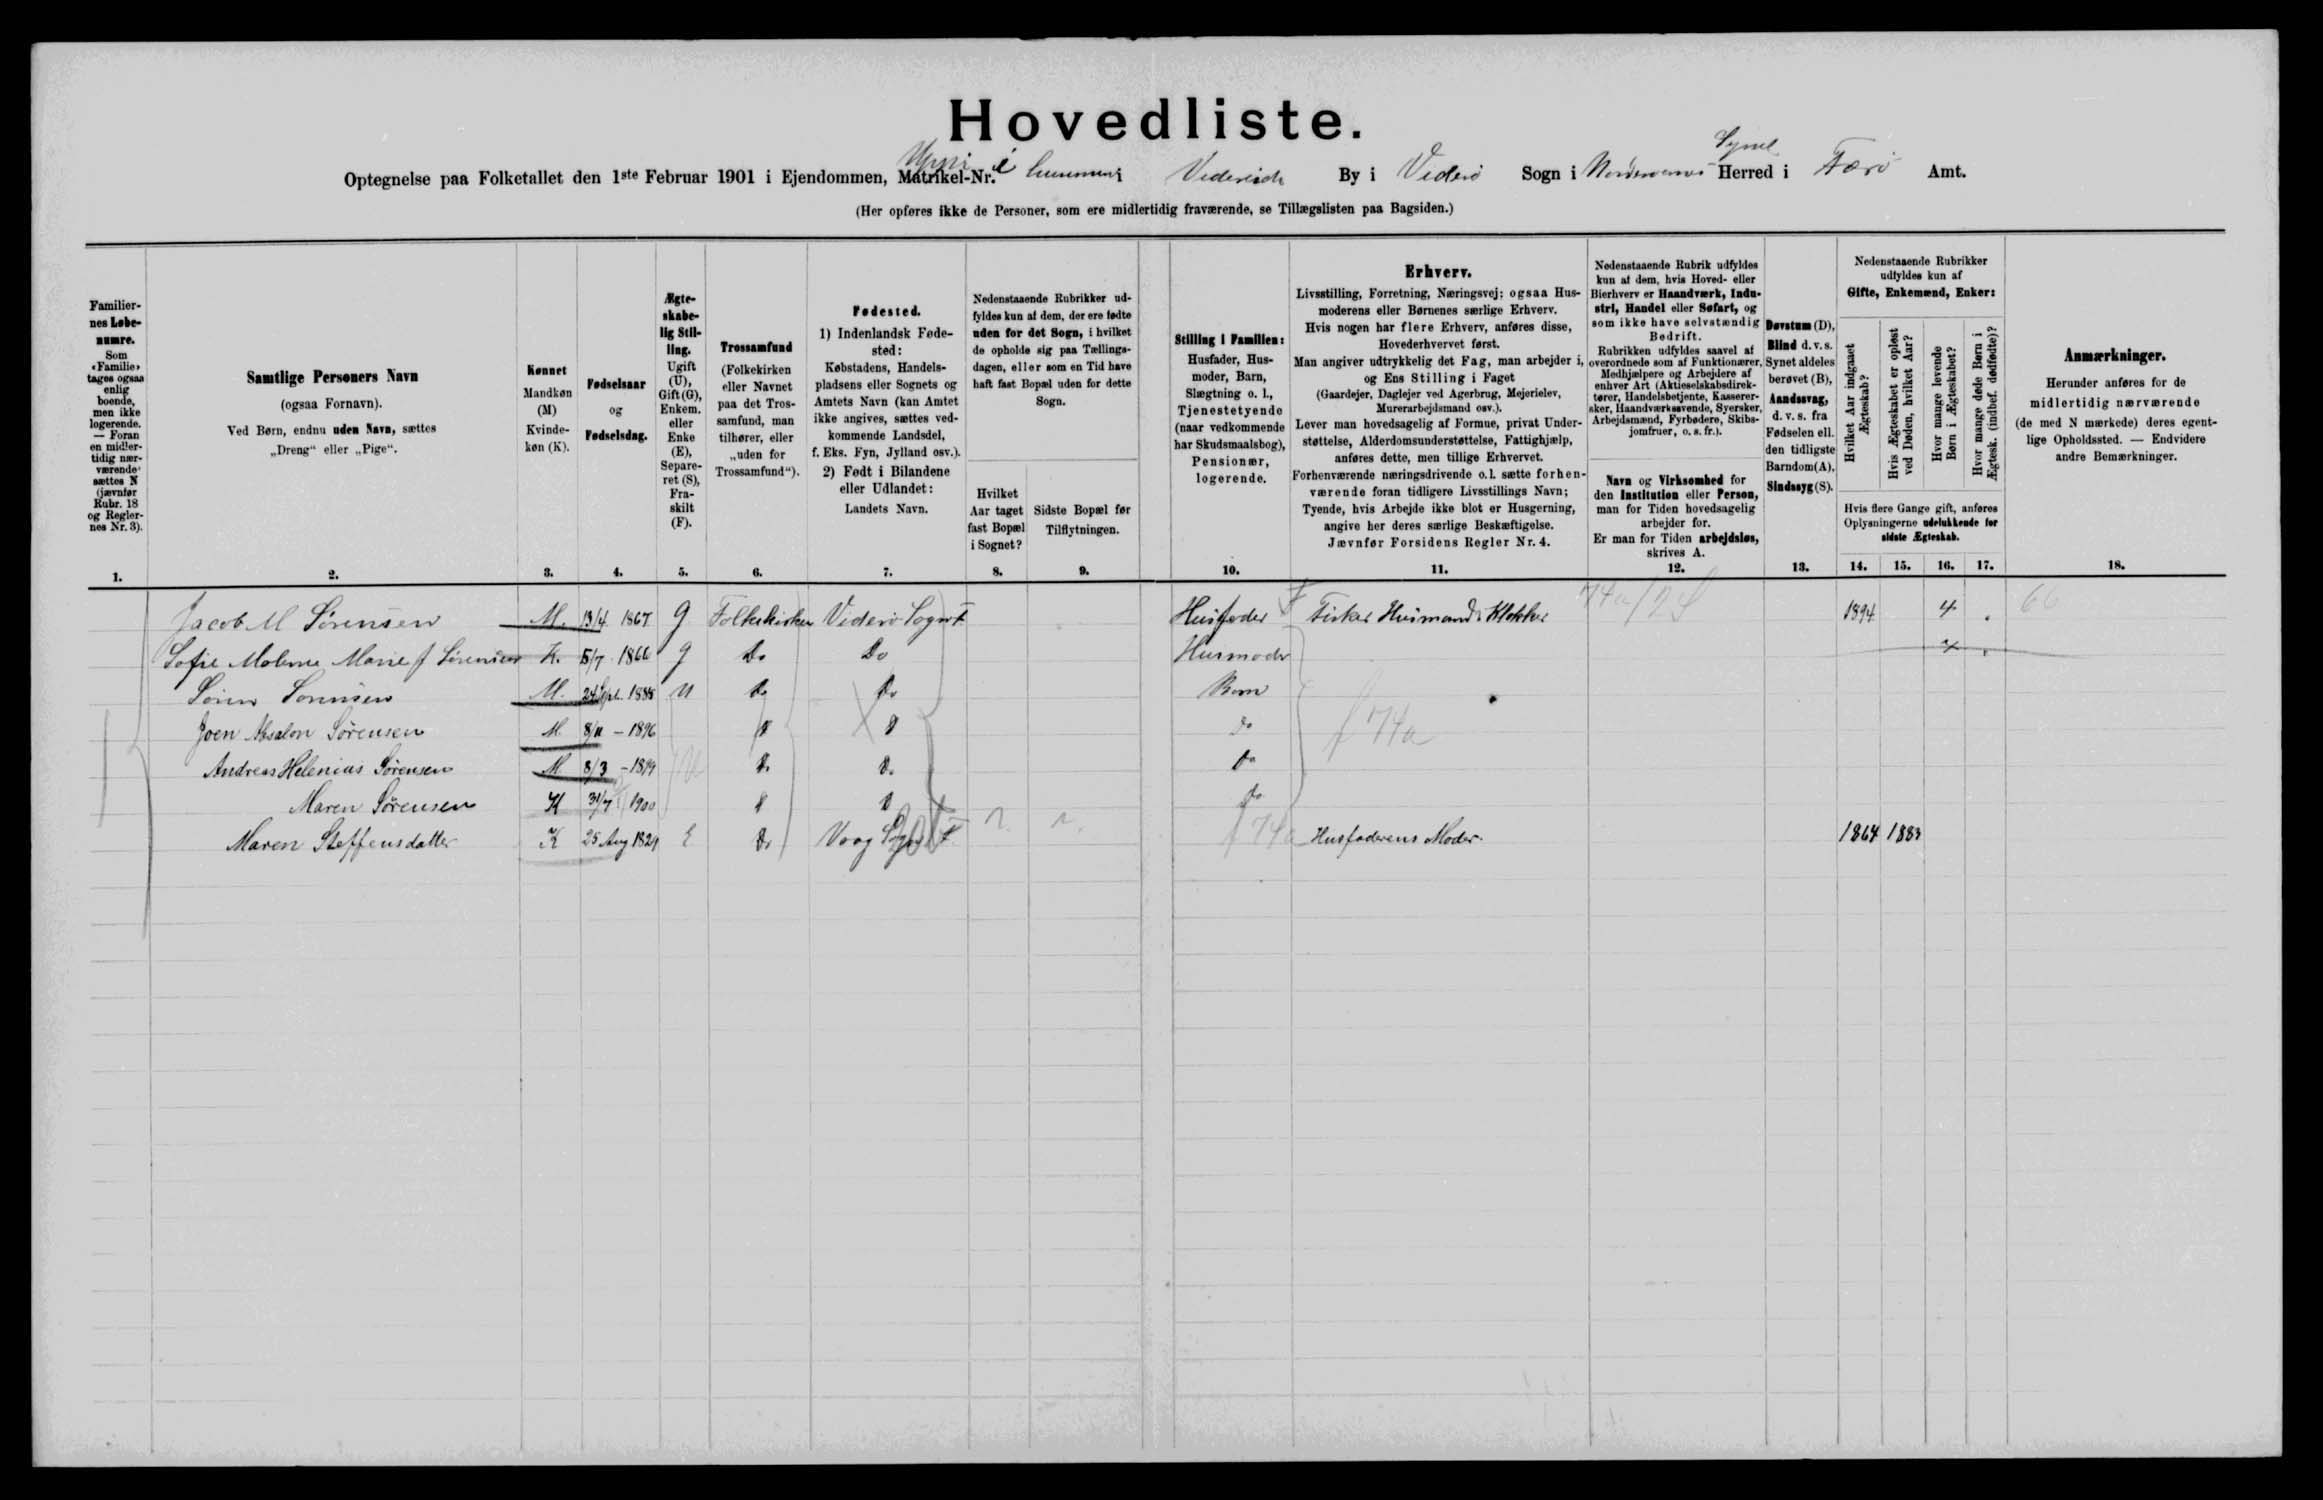 Hovedliste.
Optegnelse paa Folketallet den 1ste Februar 1901 i Ejendommen, Matrikel-Nr. Uppi i i Videreide By i Viderø Sogn i Norderøernes Syssel Herred i Færø Amt.
(Her opføres ikke de Personer, som ere midlertidig fraværende, se Tillægslisten paa Bagsiden.)
Familier-
nes Løbe-
numre.
Som
«Familie»
tages ogsaa
enlig
boende,
men ikke
logerende.
— Foran
en midler-
tidig nær-
værende
sættes N
(jævnfør
Rubr. 18
og Regler-
nes Nr. 3).
1.
Samtlige Personers Navn
(ogsaa Fornavn).
Ved Børn, endnu uden Navn, sættes
„Dreng“ eller „Pige“.
2.
Kønnet
Mandkøn
(M)
Kvinde-
køn (K).
3.
Fødselsaar
og
Fødselsdag.
4.
Ægte-
skabe-
lig Stil-
ling.
Ugift
(U),
Gift (G),
Enkem.
eller
Enke
(E),
Separe-
ret (S),
Fra-
skilt
(F).
5.
Trossamfund
(Folkekirken
eller Navnet
paa det Tros-
samfund, man
tilhører, eller
„uden for
Trossamfund“).
6.
Fødested.
1) Indenlandsk Føde-
sted:
Købstadens, Handels-
pladsens eller Sognets og
Amtets Navn (kan Amtet
ikke angives, sættes ved-
kommende Landsdel,
f. Eks. Fyn, Jylland osv.).
2) Født i Bilandene
eller Udlandet:
Landets Navn.
7.
Nedenstaaende Rubrikker ud-
fyldes kun af dem, der ere fødte
uden for det Sogn, i hvilket
de opholde sig paa Tællings-
dagen, eller som en Tid have
haft fast Bopæl uden for dette
Sogn.
Hvilket
Aar taget
fast Bopæl
i Sognet?
8.
Sidste Bopæl før
Tilflytningen.
9.
Stilling i Familien:
Husfader, Hus-
moder, Barn,
Slægtning o. l.,
Tjenestetyende
(naar vedkommende
har Skudsmaalsbog),
Pensionær,
logerende.
10.
Erhverv.
Livsstilling, Forretning, Næringsvej; ogsaa Hus-
moderens eller Børnenes særlige Erhverv.
Hvis nogen har flere Erhverv, anføres disse,
Hovederhvervet først.
Man angiver udtrykkelig det Fag, man arbejder i,
og Ens Stilling i Faget
(Gaardejer, Daglejer ved Agerbrug, Mejerielev,
Murerarbejdsmand osv.).
Lever man hovedsagelig af Formue, privat Under-
støttelse, Alderdomsunderstøttelse, Fattighjælp,
anføres dette, men tillige Erhvervet.
Forhenværende næringsdrivende o. l. sætte forhen-
værende foran tidligere Livsstillings Navn;
Tyende, hvis Arbejde ikke blot er Husgerning,
angive her deres særlige Beskæftigelse.
Jævnfør Forsidens Regler Nr. 4.
11.
Nedenstaaende Rubrik udfyldes
kun af dem, hvis Hoved- eller
Bierhverv er Haandværk, Indu-
stri, Handel eller Søfart, og
som ikke have selvstændig
Bedrift.
Rubrikken udfyldes saavel af
overordnede som af Funktionærer,
Medhjælpere og Arbejdere af
enhver Art (Aktieselskabsdirek-
tører, Handelsbetjente, Kasserer-
sker, Haandværkssvende, Syersker,
Arbejdsmænd, Fyrbødere, Skibs-
jomfruer, o. s. fr.).
Navn og Virksomhed for
den Institution eller Person,
man for Tiden hovedsagelig
arbejder for.
Er man for Tiden arbejdsløs,
skrives A.
12.
Døvstum (D),
Blind d. v. s.
Synet aldeles
berøvet (B),
Aandssvag,
d. v. s. fra
Fødselen ell.
den tidligste
Barndom (A),
Sindssyg (S).
13.
Nedenstaaende Rubrikker
udfyldes kun af
Gifte, Enkemænd, Enker:
Hvilket Aar indgaaet
Ægteskab?
Hvis Ægteskabet er opløst
ved Døden, hvilket Aar?
Hvor mange levende
Børn i Ægteskabet?
Hvor mange døde Børn i
Ægtesk. (indbef. dødfødte)?
Hvis flere Gange gift, anføres
Oplysningerne udelukkende for
sidste Ægteskab.
14. 15. 16. 17.
Anmærkninger.
Herunder anføres for de
midlertidig nærværende
(de med N mærkede) deres egent-
lige Opholdssted. — Endvidere
andre Bemærkninger.
18.
Jacob M Sørensen M. 13/4 1867 G Folkekirken Viderø Sogn F Husfader Fisker Husmand Klokker 74a 1894 4 66
Sofie Malene Marie f Sørensen K. 5/7 1866 G Do Do Husmoder
Sören Sörensen M. 24 1888 U Do Do Barn
Joen Absalon Sørensen M 8/11 - 1896 Do 74a
Andreas Helenius Sørensen M. 8/3 - 1899 U Do Do Do
Maren Sørensen K 31/7 1900 Do
Maren Steffensdatter K 25 Aug 1824 E Do Vaag Sogn F 74a Husfaderens Moder. 1864 1883